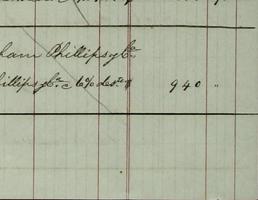 ham Phillips & Co.
hillips & Co. c 6% des. 940 "